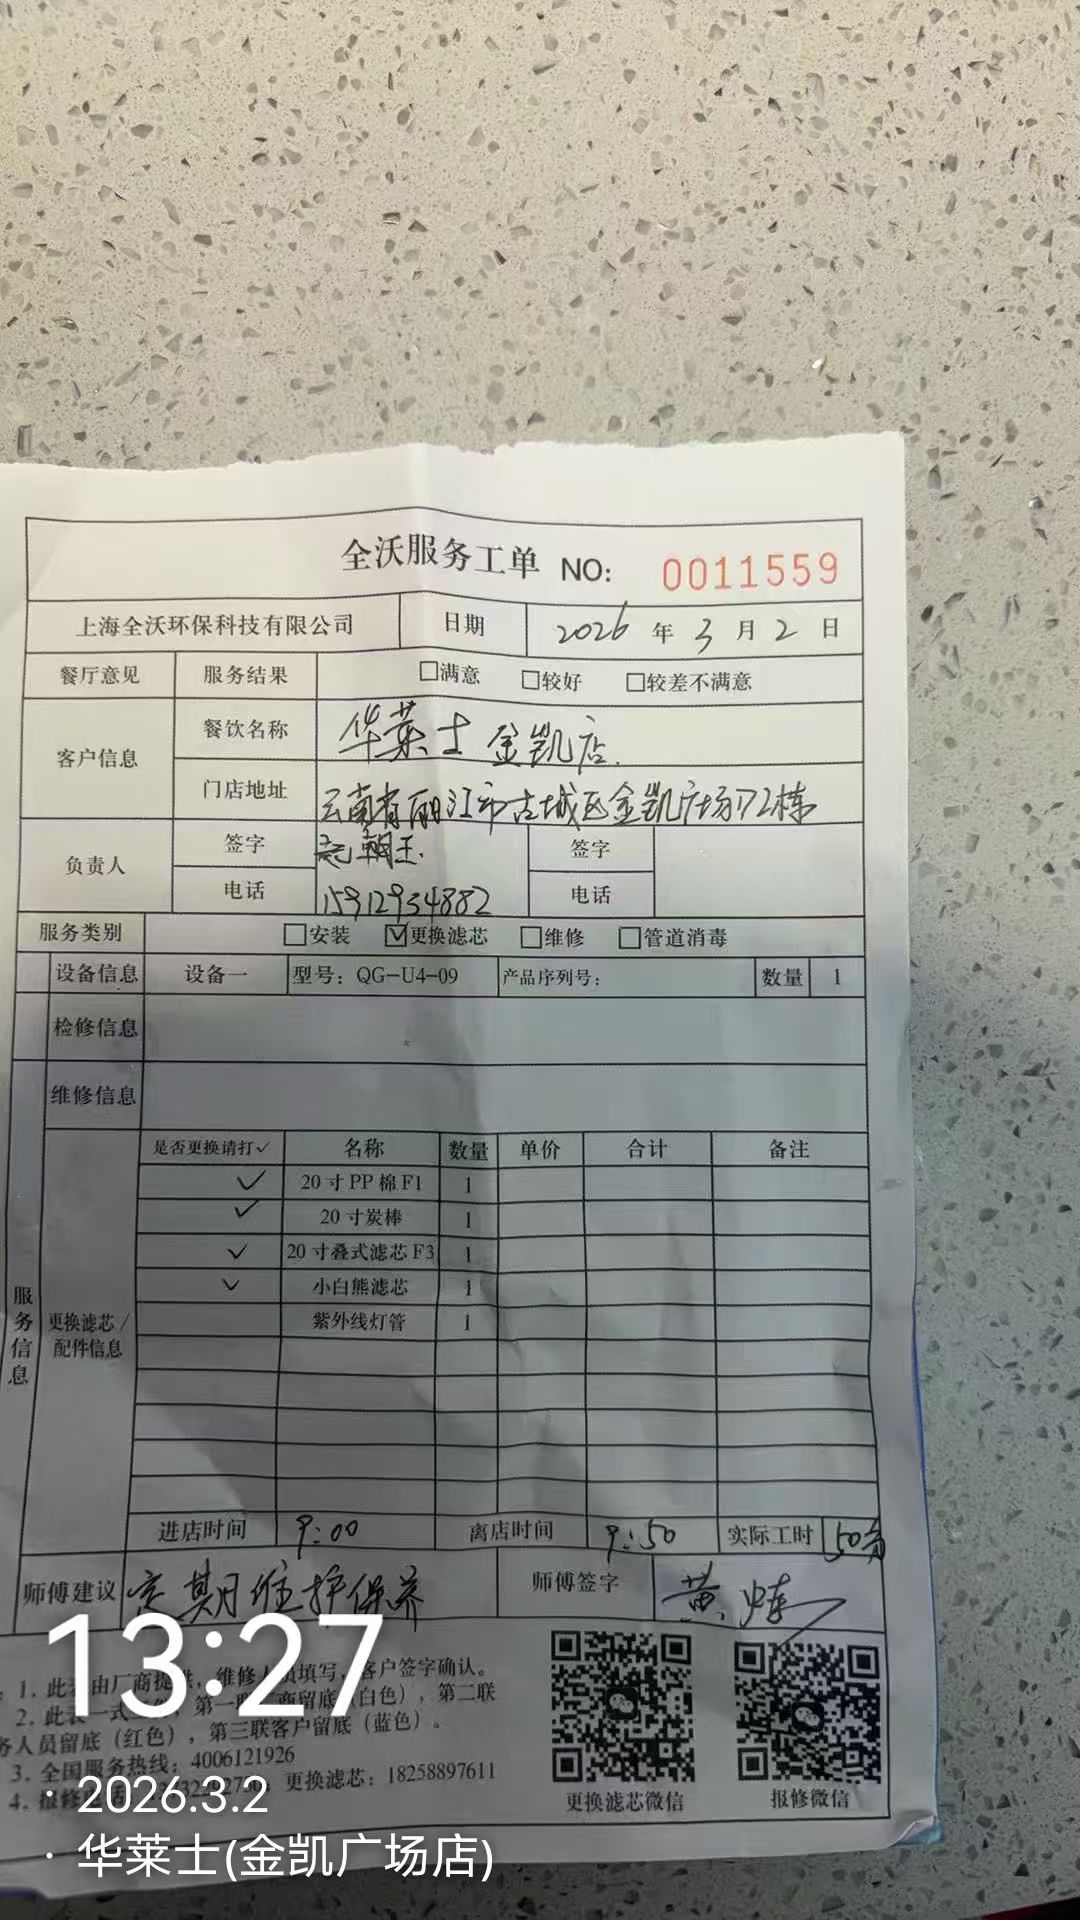 全沃服务工单 NO: 0011559
上海全沃环保科技有限公司 日期 2026 年 3 月 2 日
餐厅意见 服务结果 □满意 □较好 □较差不满意
客户信息 餐饮名称 华莱士 金凯店.
门店地址 云南省丽江市古城区金凯广场72栋
负责人 签字 朝王. 签字
电话 15912934882 电话
服务类别 □安装 ☑更换滤芯 □维修 □管道消毒
设备信息 设备一 型号：QG-U4-09 产品序列号： 数量 1
检修信息
维修信息
服务信息 更换滤芯/配件信息
是否更换请打✓ 名称 数量 单价 合计 备注
✓ 20寸PP棉F1 1
✓ 20寸炭棒 1
✓ 20寸叠式滤芯F3 1
✓ 小白熊滤芯 1
紫外线灯管 1
进店时间 9:00 离店时间 9:50 实际工时 50分
师傅建议 定期维护保养 师傅签字 黄
13:27
1. 此 由厂商提供，维修人员填写，客户签字确认。
2. 此表一式 ，第一联厂商留底（白色），第二联
务人员留底（红色），第三联客户留底（蓝色）。
3. 全国服务热线：4006121926
4. 报修 更换滤芯：18258897611
更换滤芯微信 报修微信
· 2026.3.2
· 华莱士(金凯广场店)